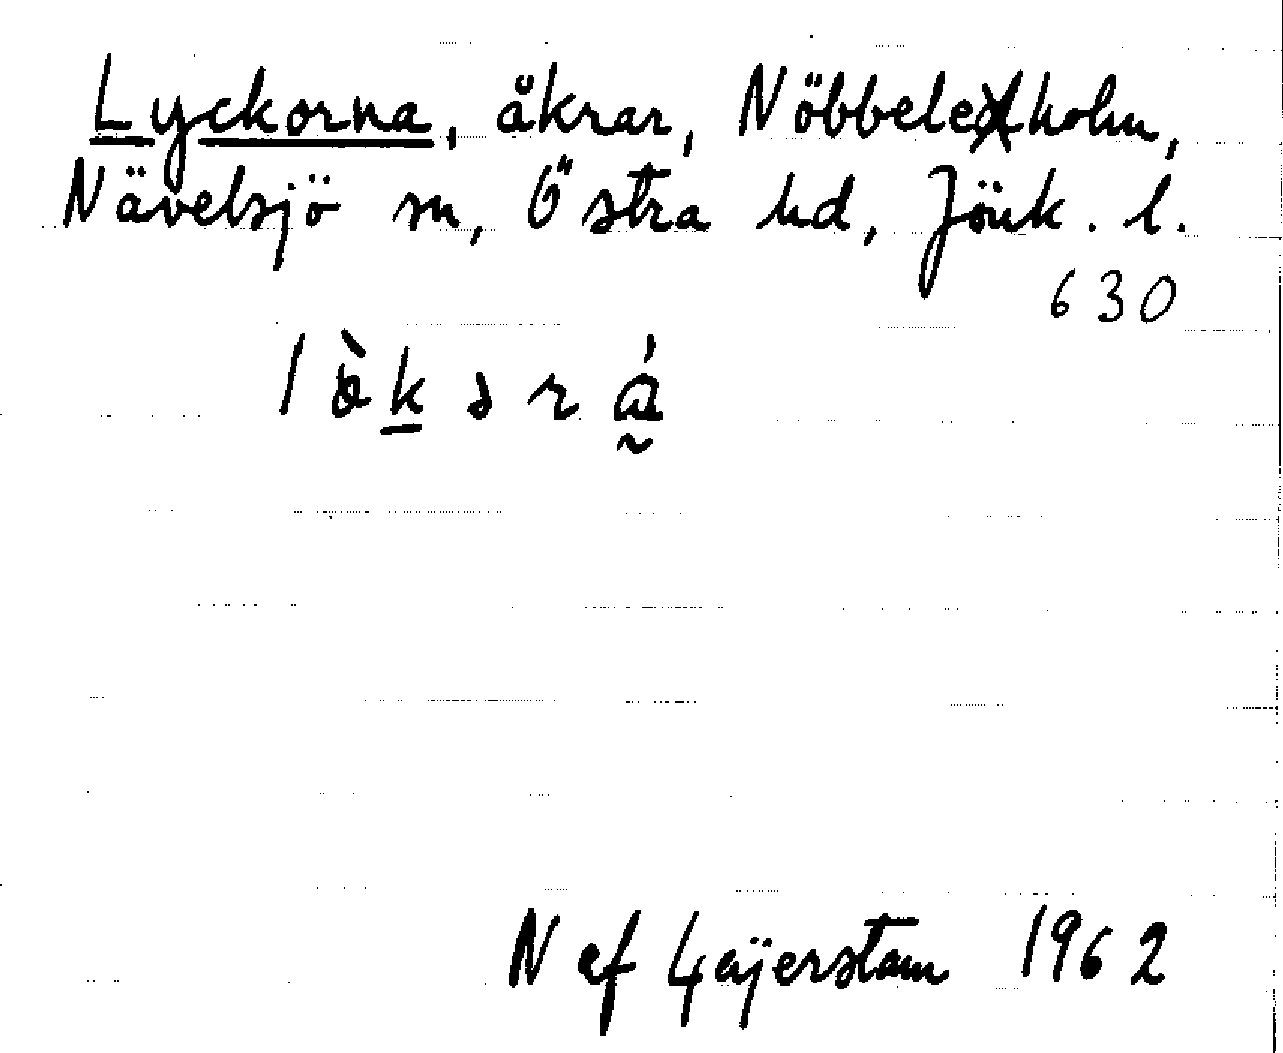 Lyckorna, åkrar, Nöbbeleholm,
Nävelsjö sn, Östra hd, Jönk. l.
630
N af Geijerstam 1962